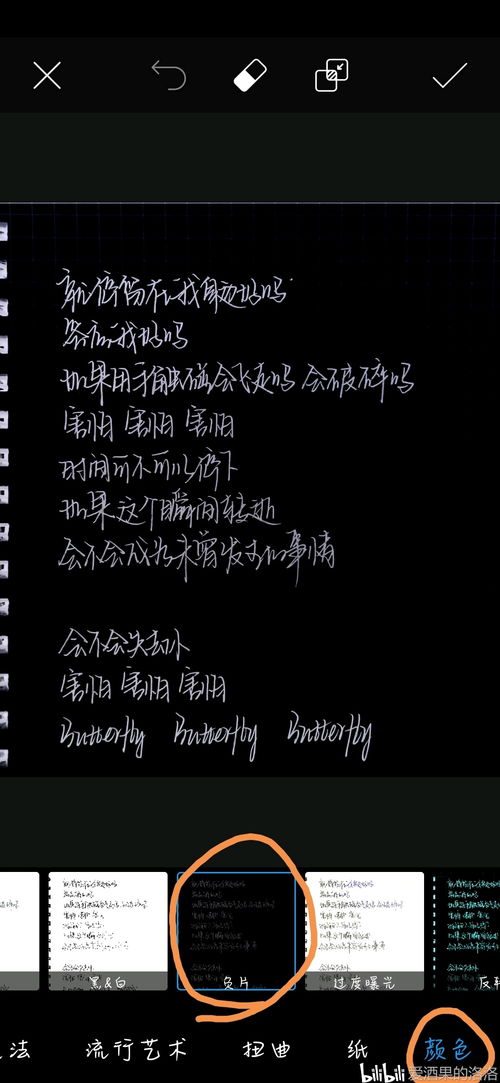 就停留在我身边好吗
答应我好吗
如果用手触碰会飞走吗 会破碎吗
害怕 害怕 害怕
时间可不可以停下
如果这个瞬间转逝
会不会成为未曾发生的事情
会不会失去你
害怕 害怕 害怕
Butterfly Butterfly Butterfly
黑&白
负片
过度曝光
反转
法
流行艺术
扭曲
纸
颜色
bilibili 爱洒果的洛洛